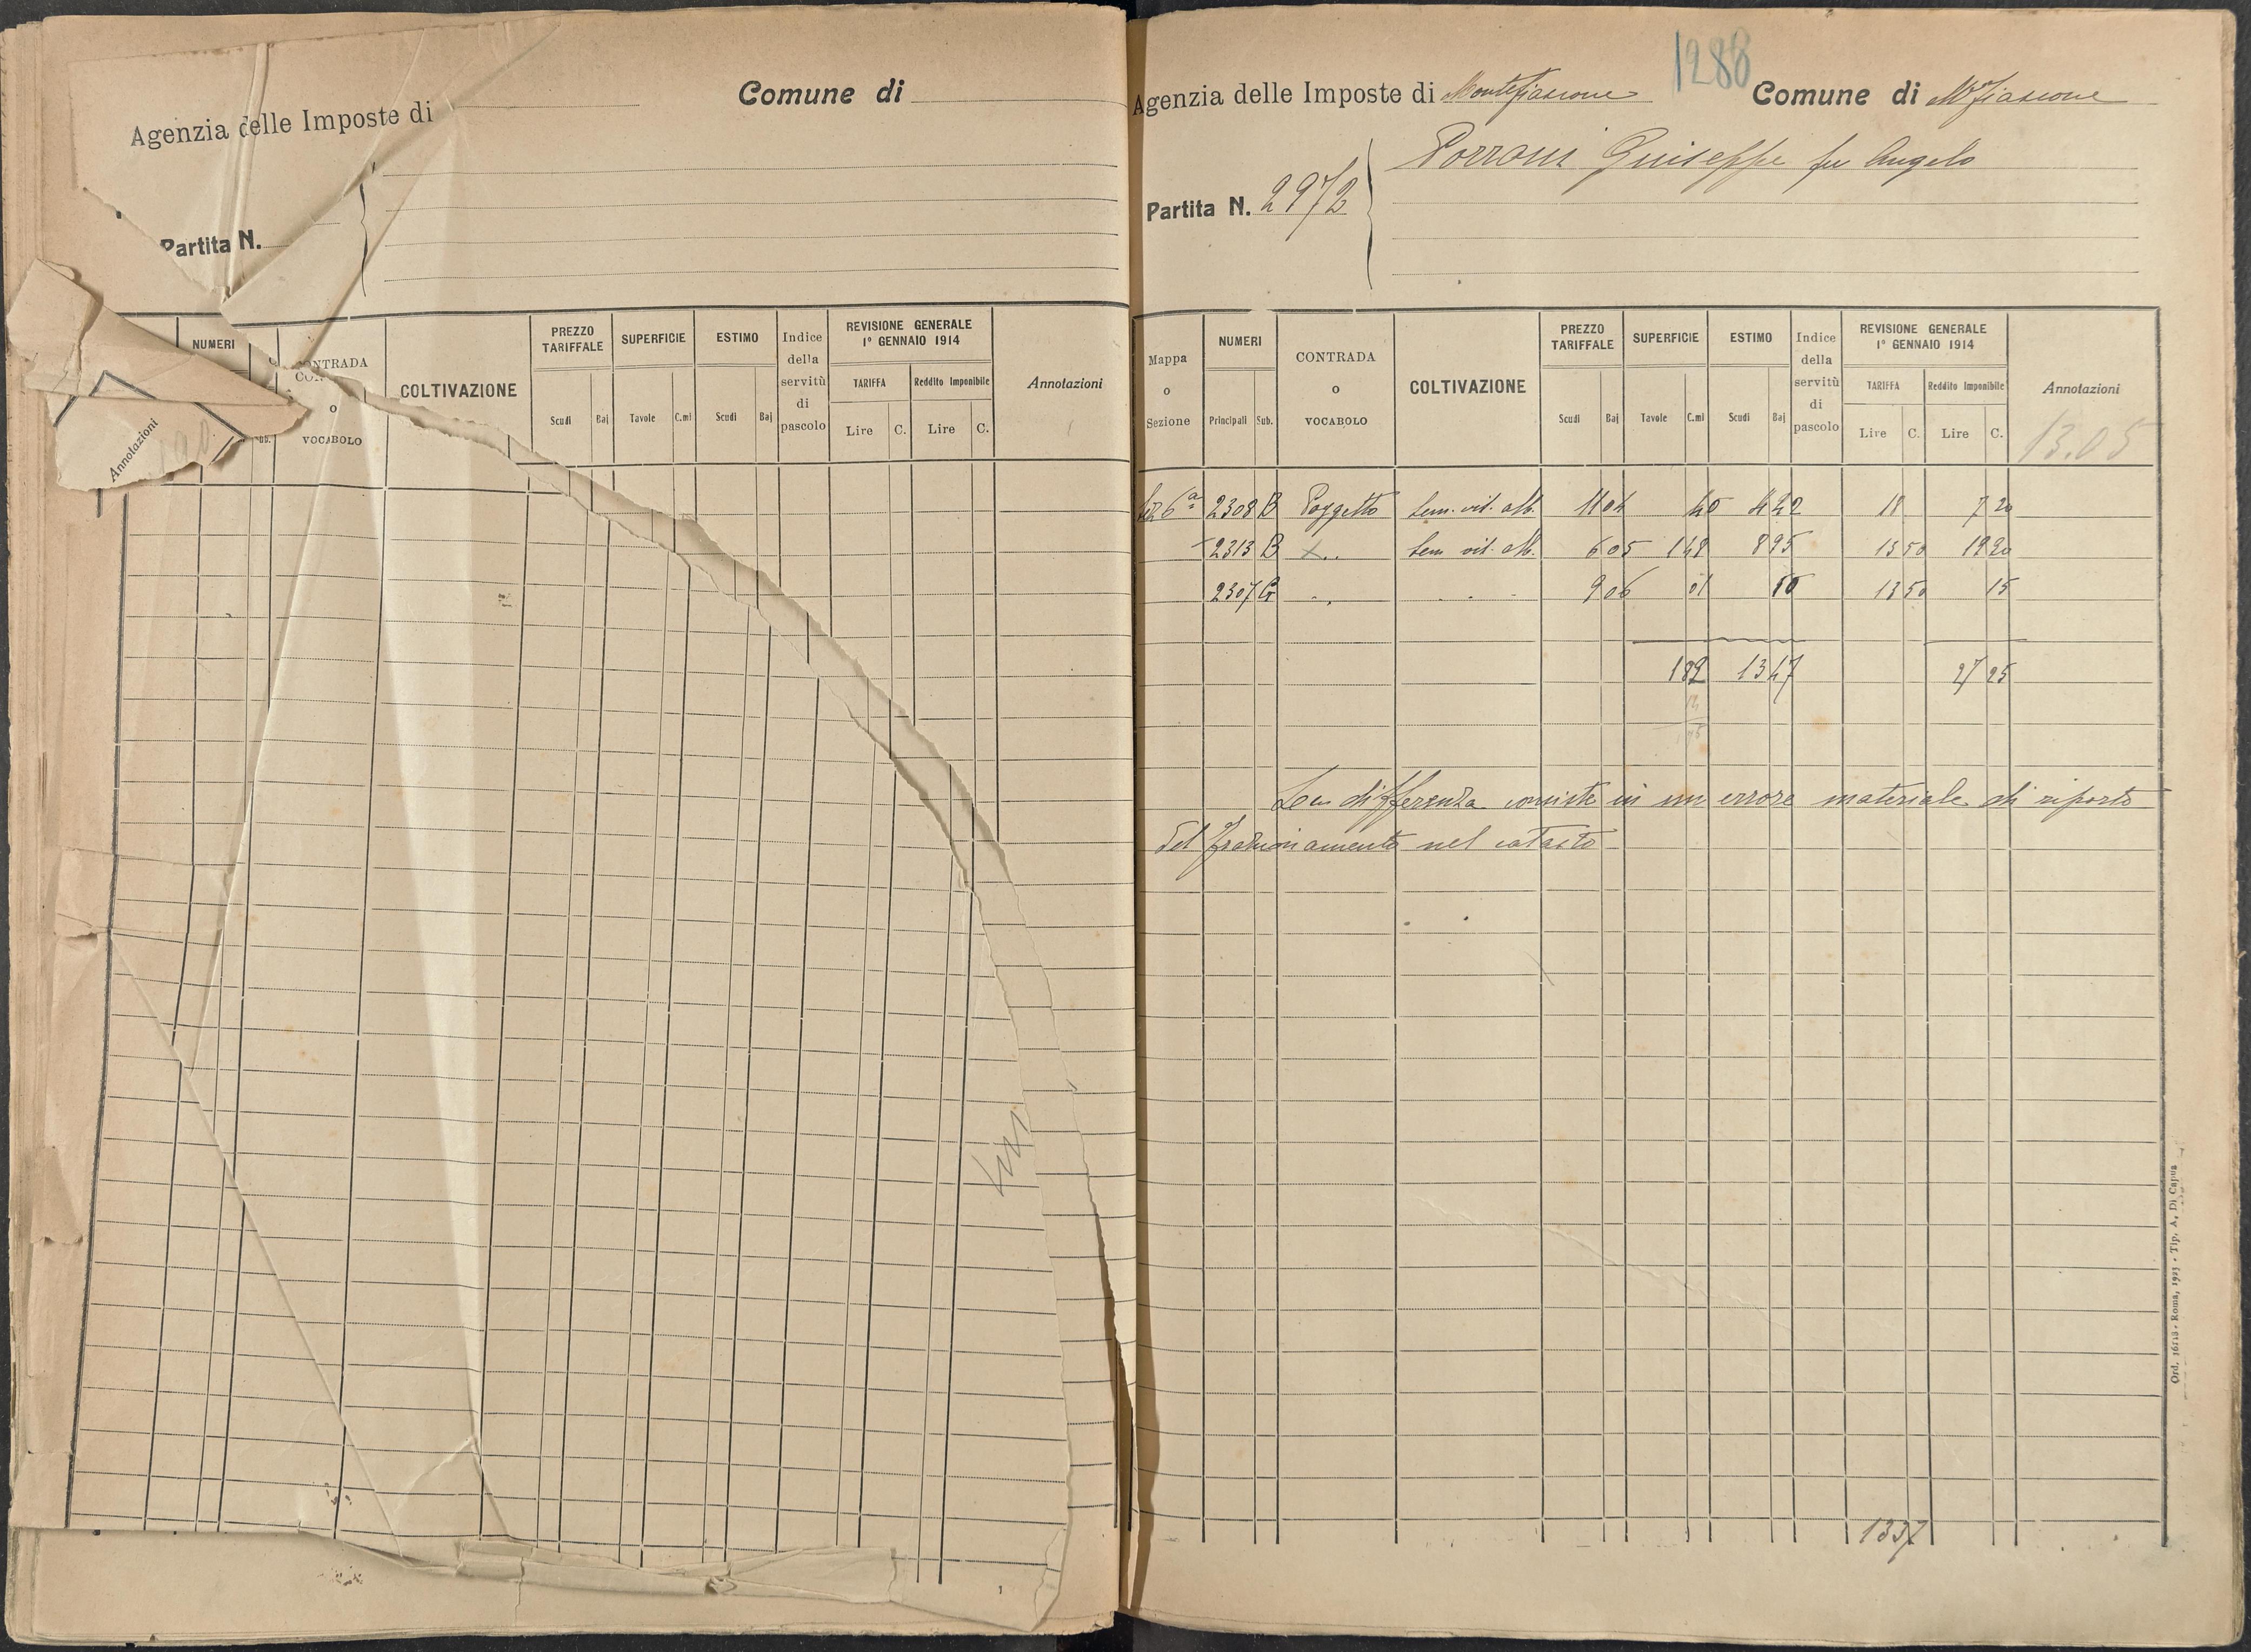 Comune di
Agenzia delle Imposte di
Partita N.
NUMERI
CONTRADA
o
VOCABOLO
COLTIVAZIONE
PREZZO TARIFFALE
Scudi Baj
SUPERFICIE
Tavole C.mi
ESTIMO
Scudi Baj
Indice della servitù di pascolo
REVISIONE GENERALE
1º GENNAIO 1914
TARIFFA Reddito Imponibile
Lire C. Lire C.
Annotazioni
Annotazioni
1288
Agenzia delle Imposte di Montefiascone Comune di M. Fiascone
Porroni Giuseppe fu Angelo
Partita N. 2972
Mappa o Sezione
NUMERI
Principali Sub.
CONTRADA
o
VOCABOLO
COLTIVAZIONE
PREZZO TARIFFALE
Scudi Baj
SUPERFICIE
Tavole C.mi
ESTIMO
Scudi Baj
Indice della servitù di pascolo
REVISIONE GENERALE
1º GENNAIO 1914
TARIFFA Reddito Imponibile
Lire C. Lire C.
Annotazioni
13.05
Sez 6ª 2308 B Poggetto Sem. vit. alb. 1104 40 442 18 7 20
2313 B Sem vit. alb. 605 148 895 13 50 19 20
2307 G 906 01 10 13 50 15
182 1347 27 25
La differenza consiste in un errore materiale di riporto
del frazionamento nel catasto
1337
Ord. 16118 - Roma, 1923 - Tip. A. Di Capua